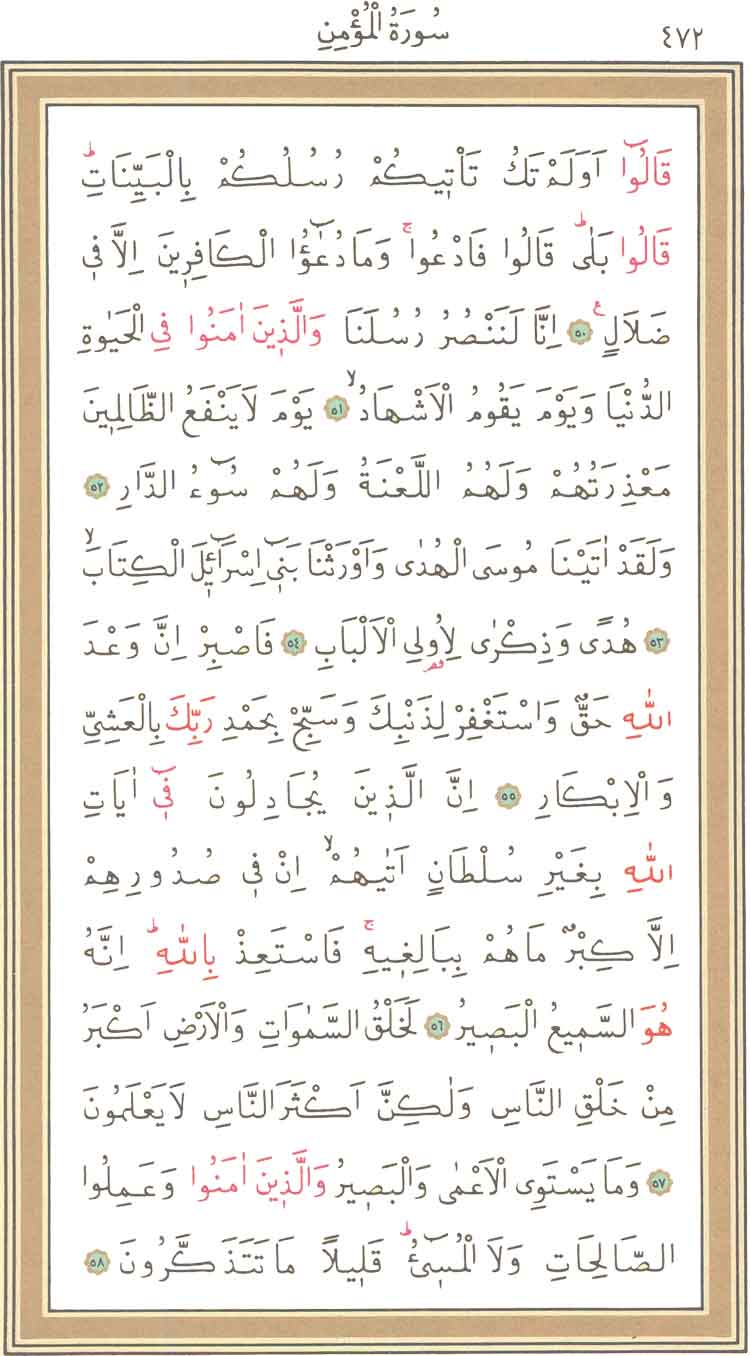 سُورَةُ الْمُؤْمِنِ
٤٧٢
قَالُٓوا اَوَلَمْ تَكُ تَأْت۪يكُمْ رُسُلُكُمْ بِالْبَيِّنَاتِۜ
قَالُوا بَلٰىۜ قَالُوا فَادْعُواۚ وَمَا دُعَٓاؤُا الْكَافِر۪ينَ اِلَّا ف۪ي
ضَلَالٍ۟ ٥٠ اِنَّا لَنَنْصُرُ رُسُلَنَا وَالَّذ۪ينَ اٰمَنُوا فِي الْحَيٰوةِ
الدُّنْيَا وَيَوْمَ يَقُومُ الْاَشْهَادُۙ ٥١ يَوْمَ لَا يَنْفَعُ الظَّالِم۪ينَ
مَعْذِرَتُهُمْ وَلَهُمُ اللَّعْنَةُ وَلَهُمْ سُٓوءُ الدَّارِ ٥٢
وَلَقَدْ اٰتَيْنَا مُوسَى الْهُدٰى وَاَوْرَثْنَا بَن۪ٓي اِسْرَٓائ۪لَ الْكِتَابَۙ
٥٣ هُدًى وَذِكْرٰى لِاُولِي الْاَلْبَابِ ٥٤ فَاصْبِرْ اِنَّ وَعْدَ
اللّٰهِ حَقٌّ وَاسْتَغْفِرْ لِذَنْبِكَ وَسَبِّحْ بِحَمْدِ رَبِّكَ بِالْعَشِيِّ
وَالْاِبْكَارِ ٥٥ اِنَّ الَّذ۪ينَ يُجَادِلُونَ ف۪ٓي اٰيَاتِ
اللّٰهِ بِغَيْرِ سُلْطَانٍ اَتٰيهُمْۙ اِنْ ف۪ي صُدُورِهِمْ
اِلَّا كِبْرٌ مَا هُمْ بِبَالِغ۪يهِۚ فَاسْتَعِذْ بِاللّٰهِۜ اِنَّهُ
هُوَ السَّم۪يعُ الْبَص۪يرُ ٥٦ لَخَلْقُ السَّمٰوَاتِ وَالْاَرْضِ اَكْبَرُ
مِنْ خَلْقِ النَّاسِ وَلٰكِنَّ اَكْثَرَ النَّاسِ لَا يَعْلَمُونَ
٥٧ وَمَا يَسْتَوِي الْاَعْمٰى وَالْبَص۪يرُ وَالَّذ۪ينَ اٰمَنُوا وَعَمِلُوا
الصَّالِحَاتِ وَلَا الْمُس۪ٓيءُۜ قَل۪يلًا مَا تَتَذَكَّرُونَ ٥٨